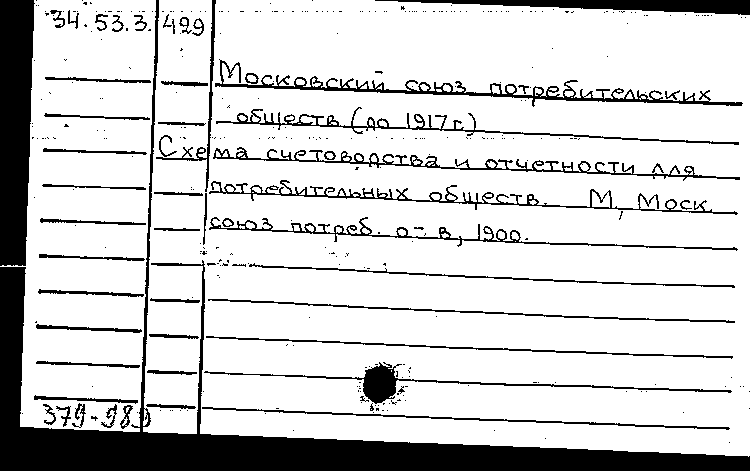 34.53.3. 429
Московский союз потребительских
обществ (до 1917 г.)
Схема счетоводства и отчетности для
потребительных обществ. М, Моск.
союз потреб. о-в, 1900.
379-989